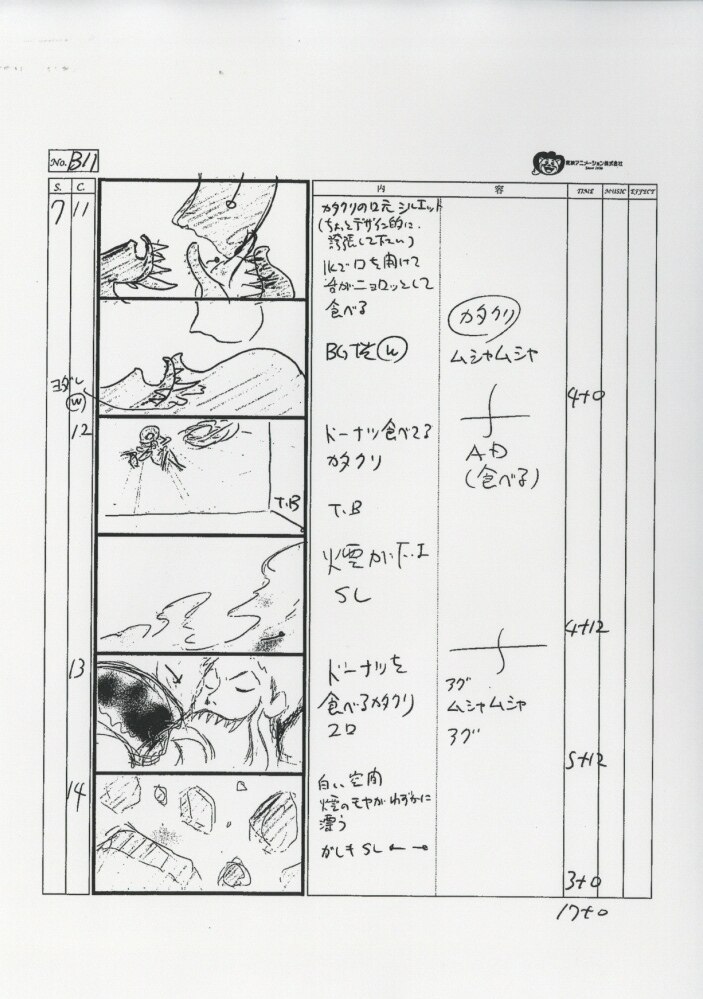 No. B11
東映アニメーション株式会社
S. C. 内 容 TIME MUSIC EFFECT
7 11
カタクリの口元 シルエット
(ちょっとデザイン的に
誇張して下さい)
1Kで口を開けて
舌がニョロッとして
食べる
カタクリ
BG
ムシャムシャ
ヨダレ
W
4+0
12
ドーナツ食べてる
カタクリ
(食べる)
T.B
T.B
煙が
SL
4+12
13
ドーナツを
食べるカタクリ
2口
アグ
ムシャムシャ
アグ
5+12
14
白い空間
煙のモヤがわずかに
漂う
がれき SL ← →
3+0
17+0